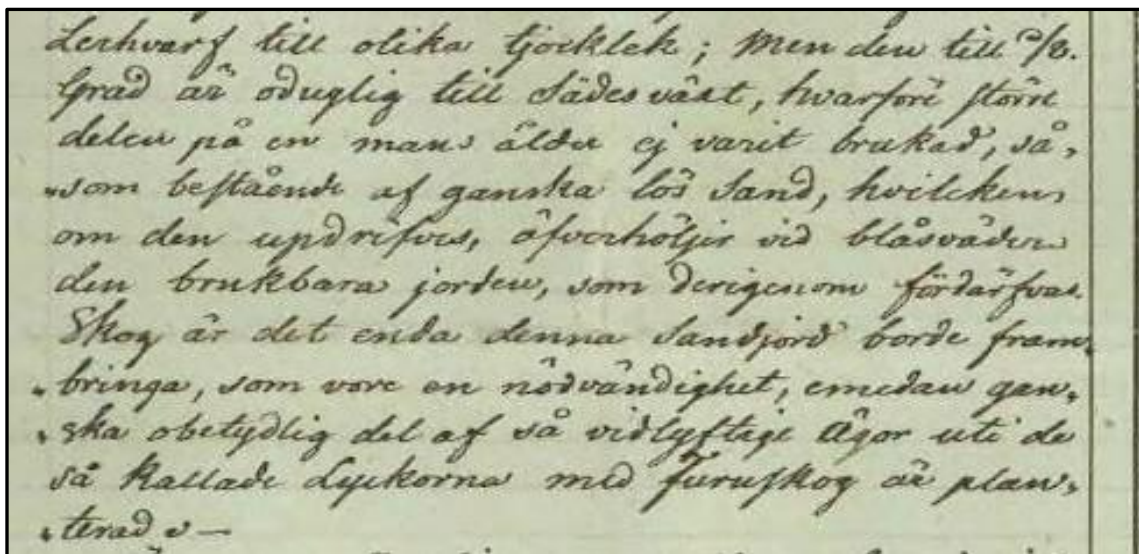 Lerhvarf till olika tjocklek; Men den till 2/8.
Grad är oduglig till Sädesväxt, hvarföre större
delen på en mans ålder ej varit brukad, så,
"som bestående af ganska lös Sand, hvilcken,
om den updrifves, öfverhöljer vid blåsväder
den brukbara jorden, som derigenom fördärfvas.
Skog är det enda denna Sandjord borde fram,
"bringa, som vore en nödvändighet, emedan gan,
"ska obetydlig del af så vidlyftige Ägor uti de
så kallade Lyckorna med Furuskog är plan,
"terad. —